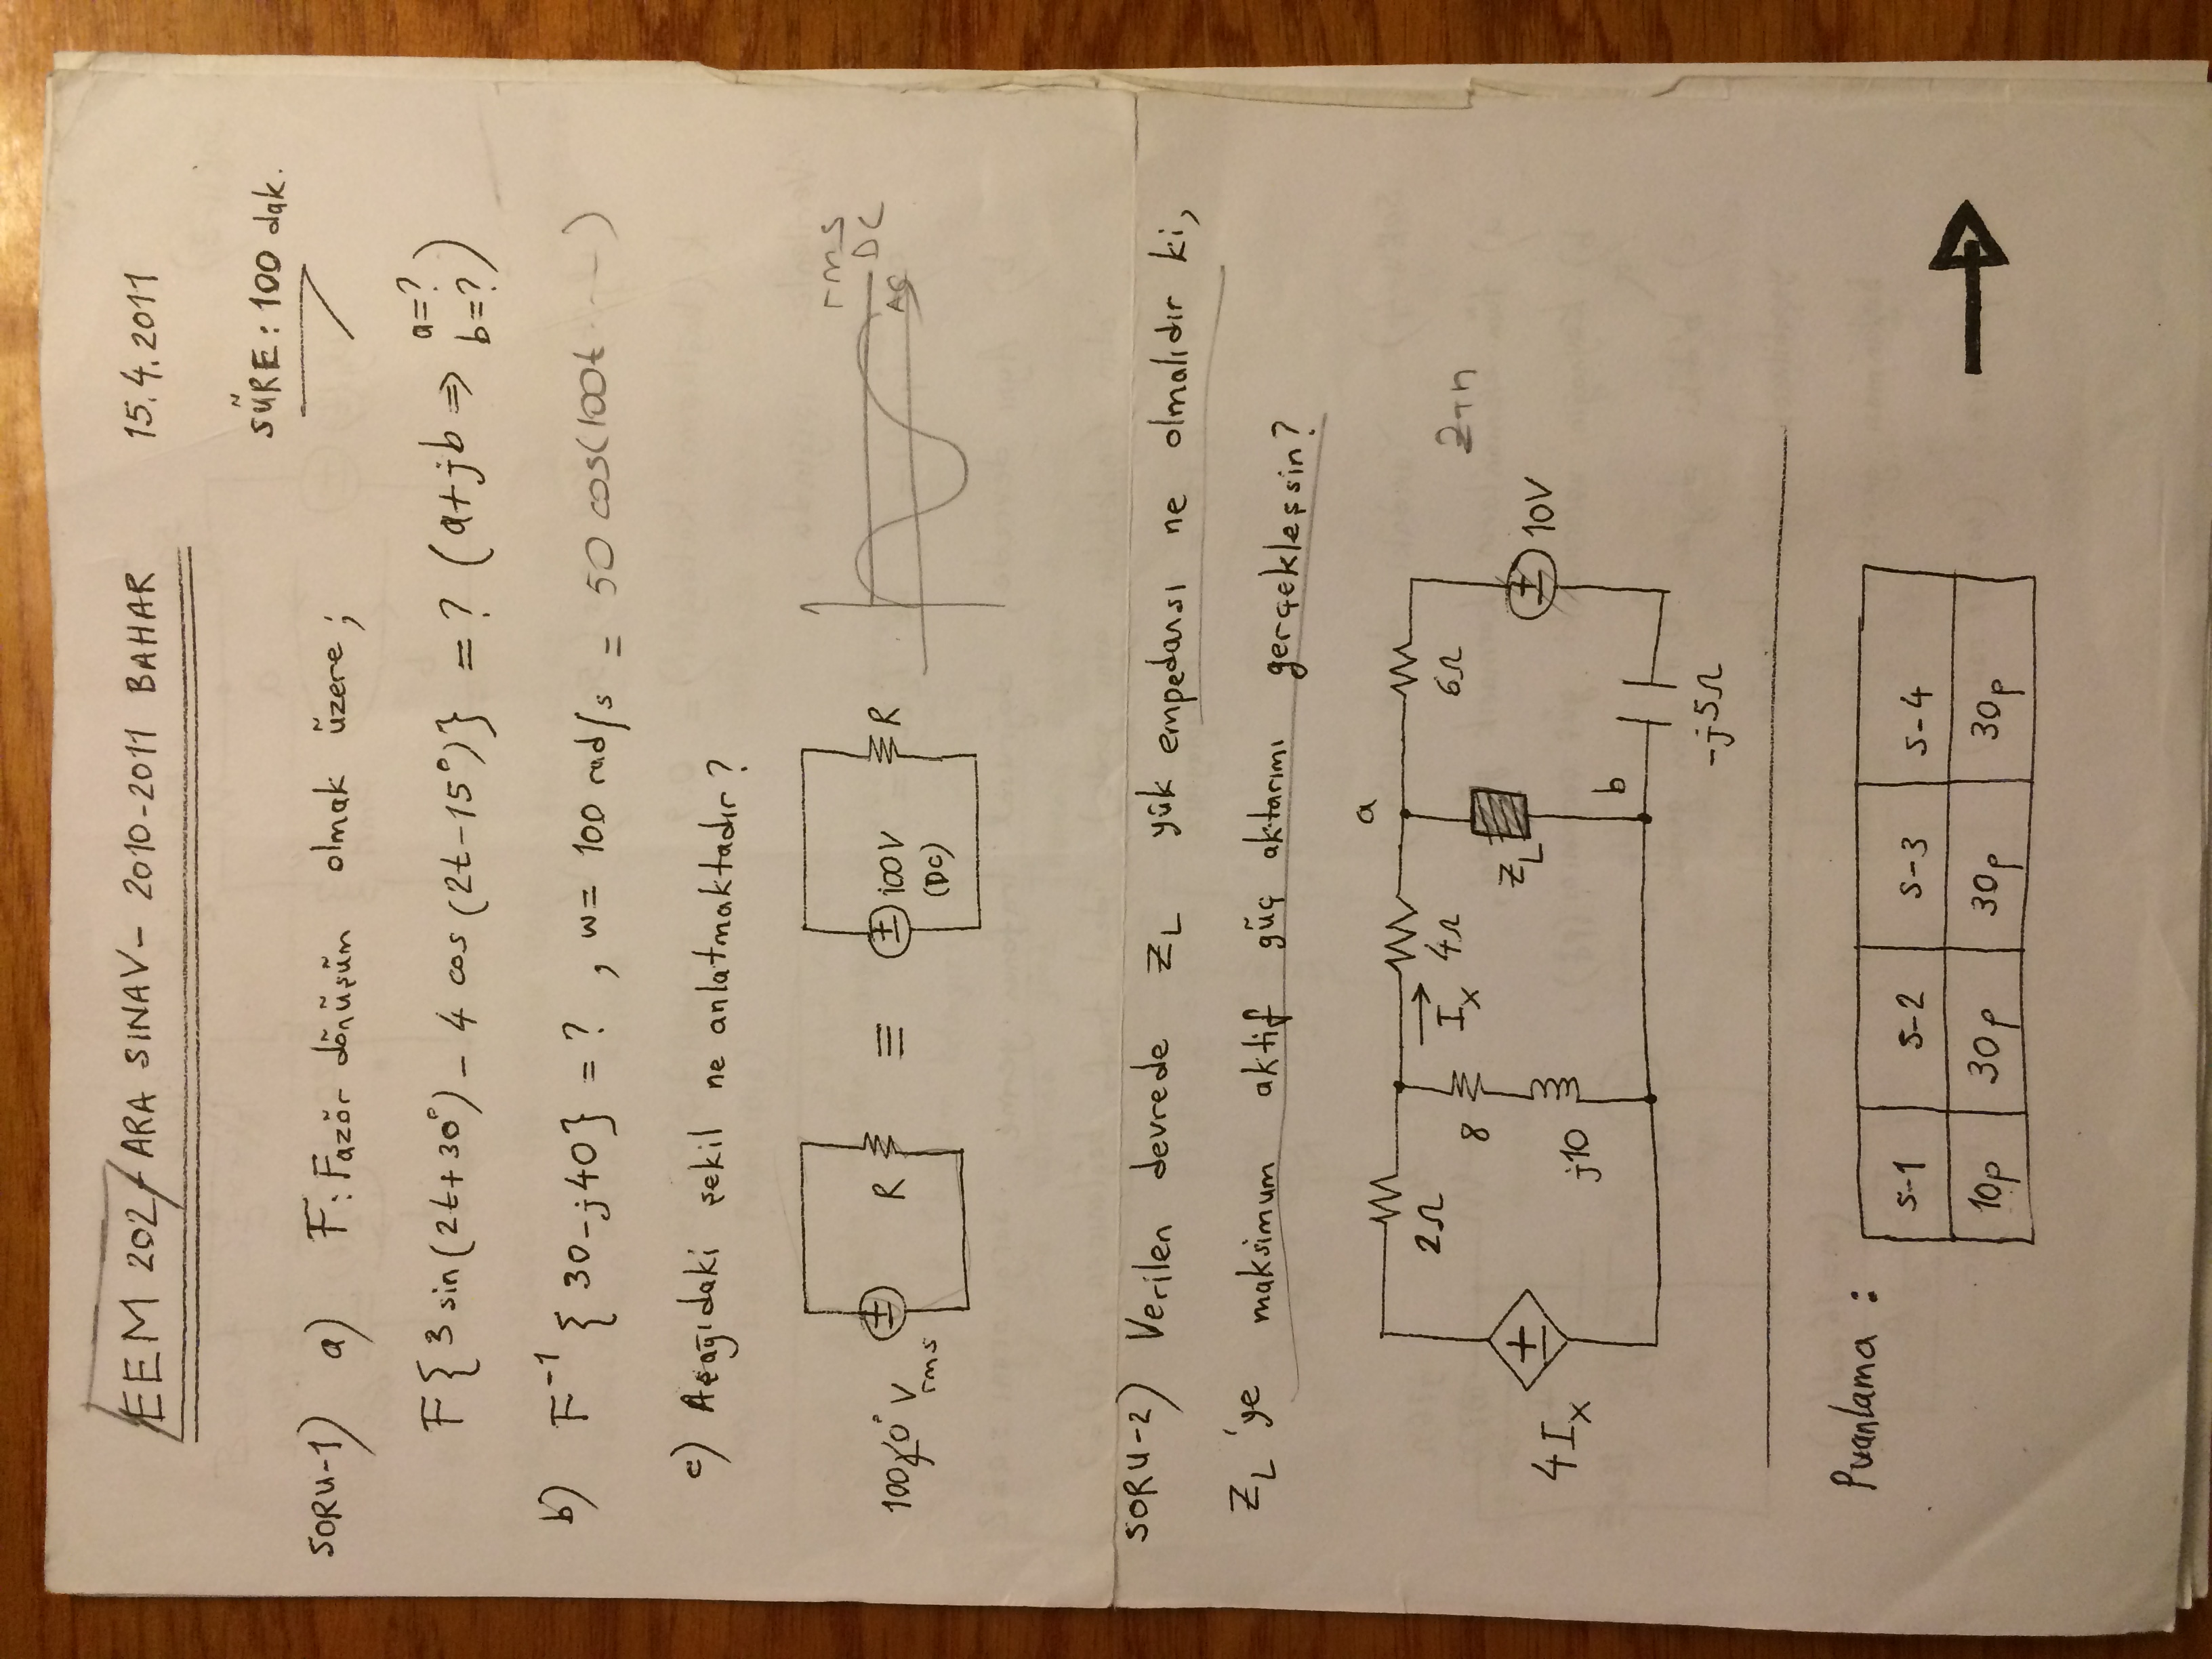 EEM 202 - ARA SINAV - 2010-2011 BAHAR 15.4.2011
SÜRE: 100 dak.
SORU-1) a) F: Fazör dönüşüm olmak üzere;
F{3 sin(2t+30°) - 4 cos(2t-15°)} = ? (a+jb ⇒ a=? b=?)
b) F⁻¹{30-j40} = ? , w = 100 rad/s = 50 cos(100t ... )
c) Aşağıdaki şekil ne anlatmaktadır?
100∠0° Vrms
R
≡
100V
(DC)
R
rms
DC
AC
SORU-2) Verilen devrede ZL yük empedansı ne olmalıdır ki,
ZL'ye maksimum aktif güç aktarımı gerçekleşsin?
a
2Ω
Ix
4Ω
6Ω
ZTh
8
ZL
4Ix
j10
10V
b
-j5Ω
Puanlama :
S-1 S-2 S-3 S-4
10p 30p 30p 30p